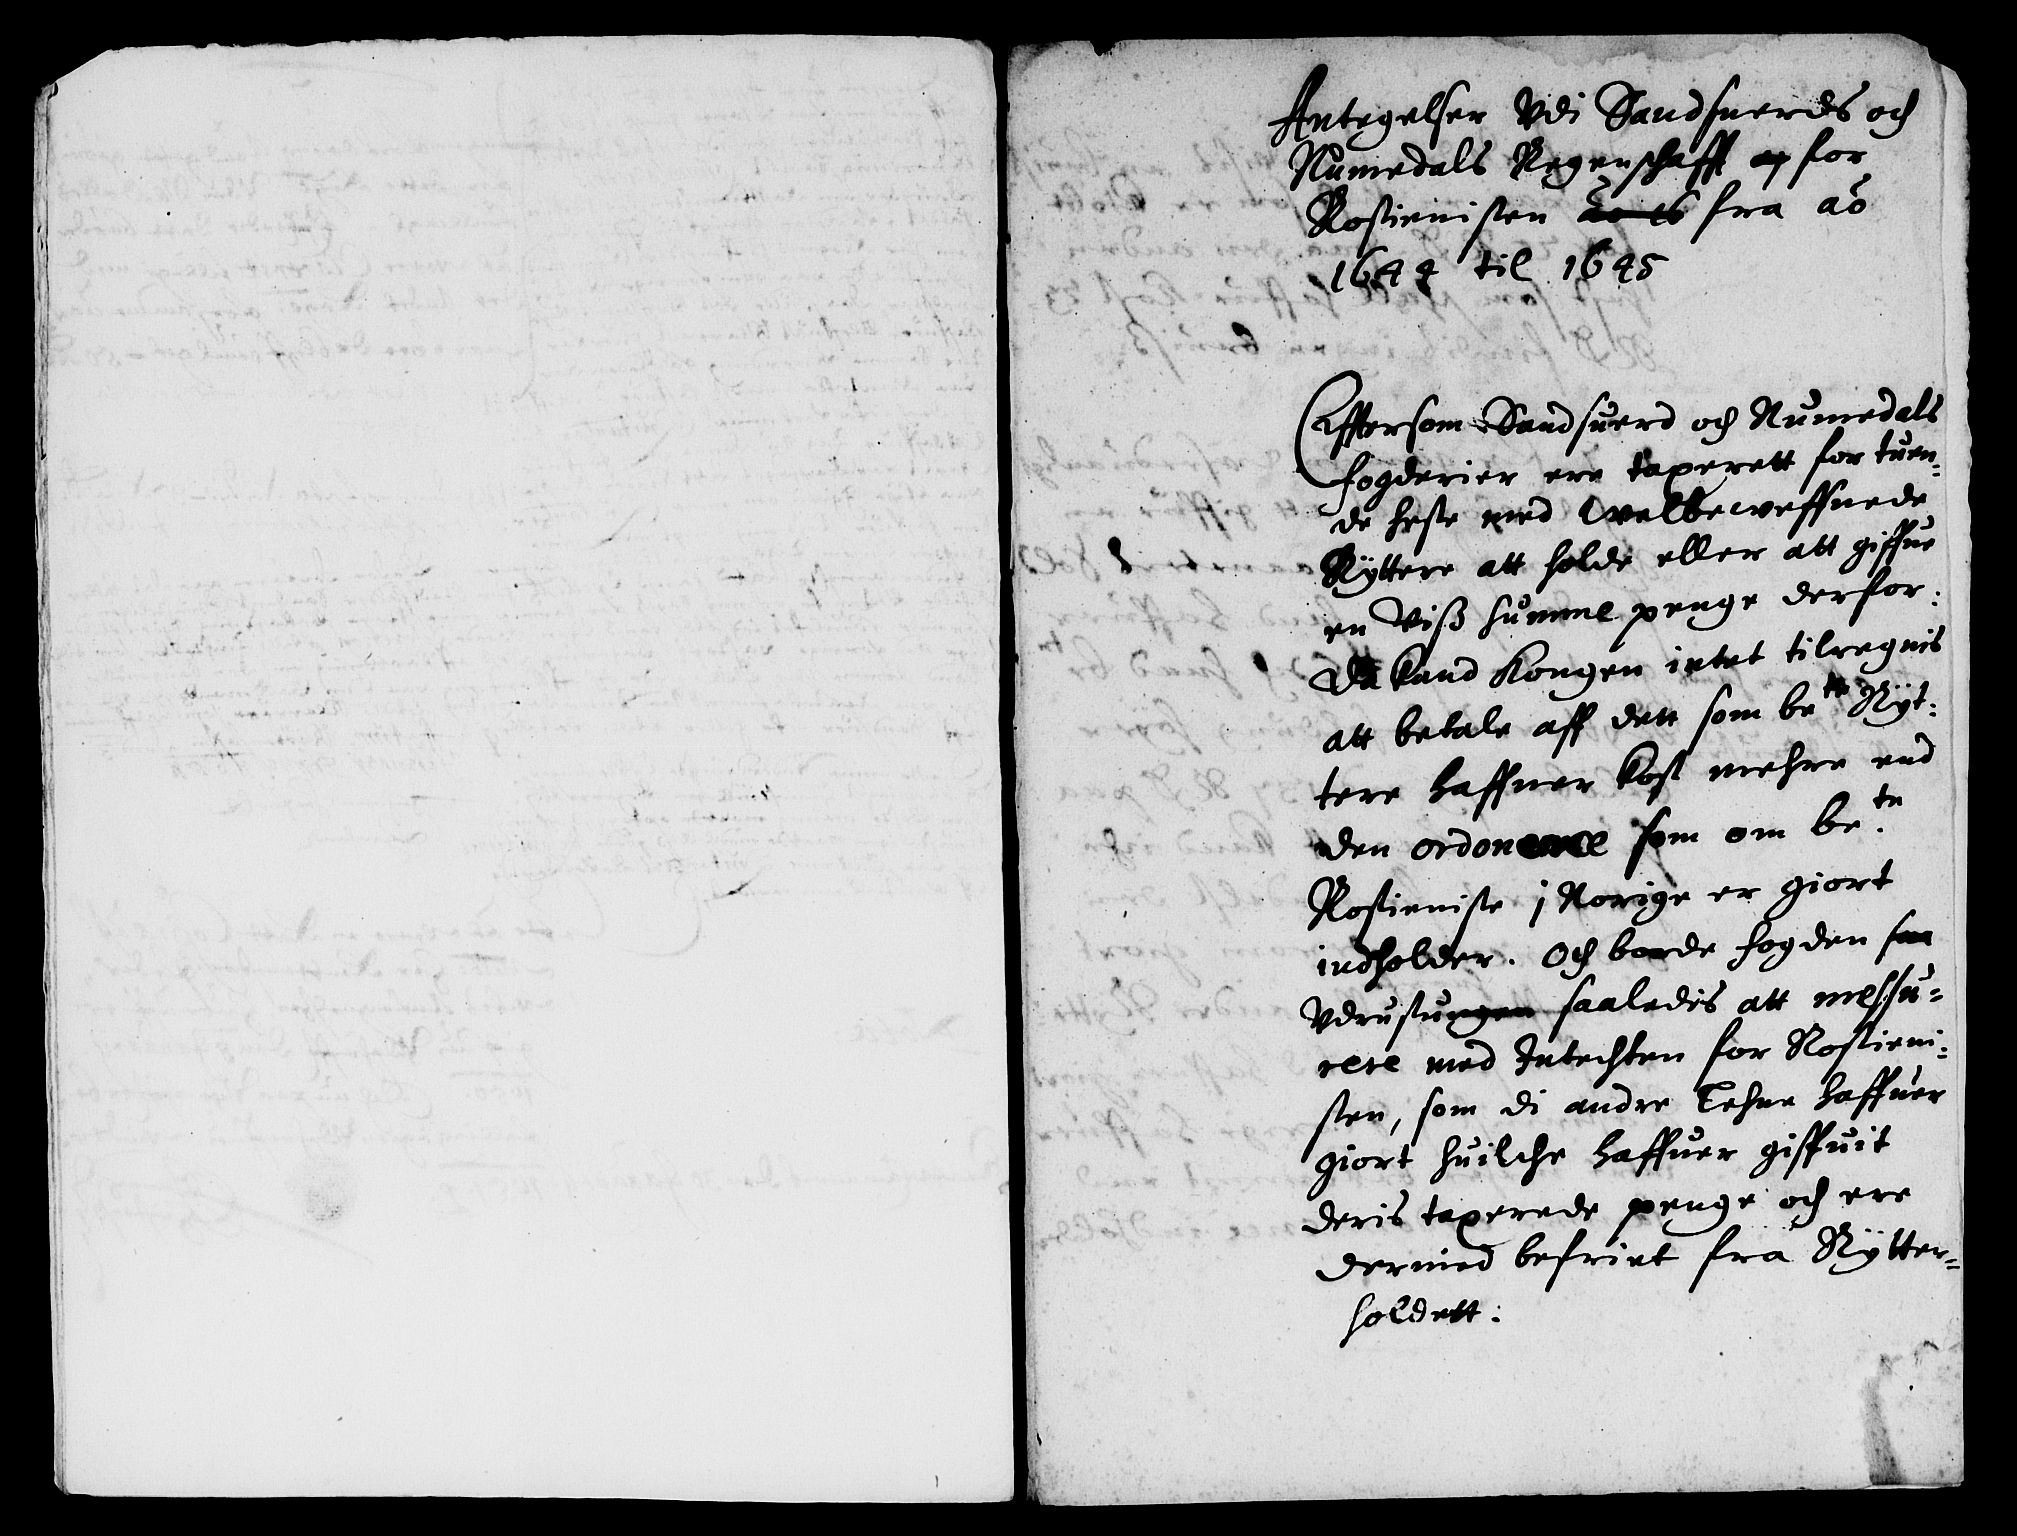 Antegelser Vdi Sandsuerds och
Numedals Regenschaff for
Rostienisten fra ao
1644 til 1645
Efftersom Sandsuerd och Numedals
fogderier ere taxerett for tuen-
de heste med Welbeweffnede
Rÿttere att holde eller att giffue
en Viß summe penge derfor:
Da kand Kongen intet tilregnis
att betale aff dett som bete Rÿt:
tere haffuer kost mehre end
den ordonence som om bete
Rostieniste i Norige er giort
indholder. Och borde fogden
Vdrustungen saaledis att messu-
rere med Intechten for Rostieni-
sten, som di andre Lehne haffuer
giort huilche haffuer giffuit
deris taxerede penge och ere
dermed befriet fra Rÿtter-
holdett: